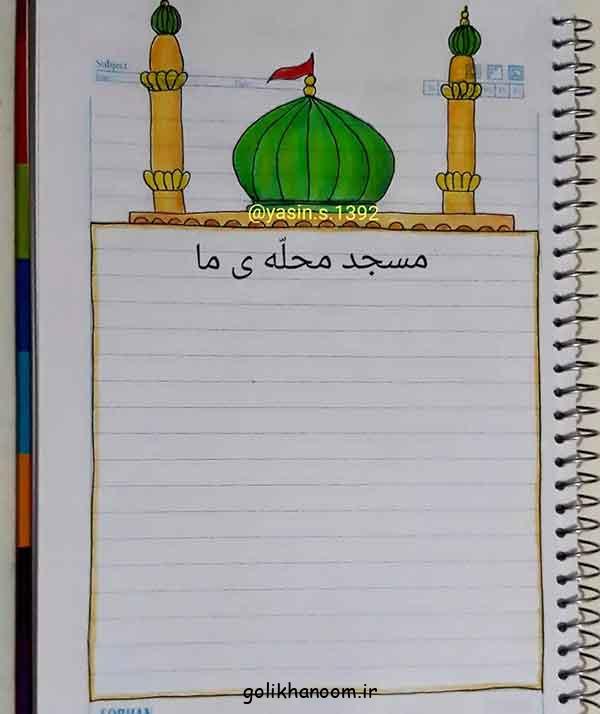 Subject
Date
@yasin.s.1392
مسجد محلّه ی ما
golikhanoom.ir